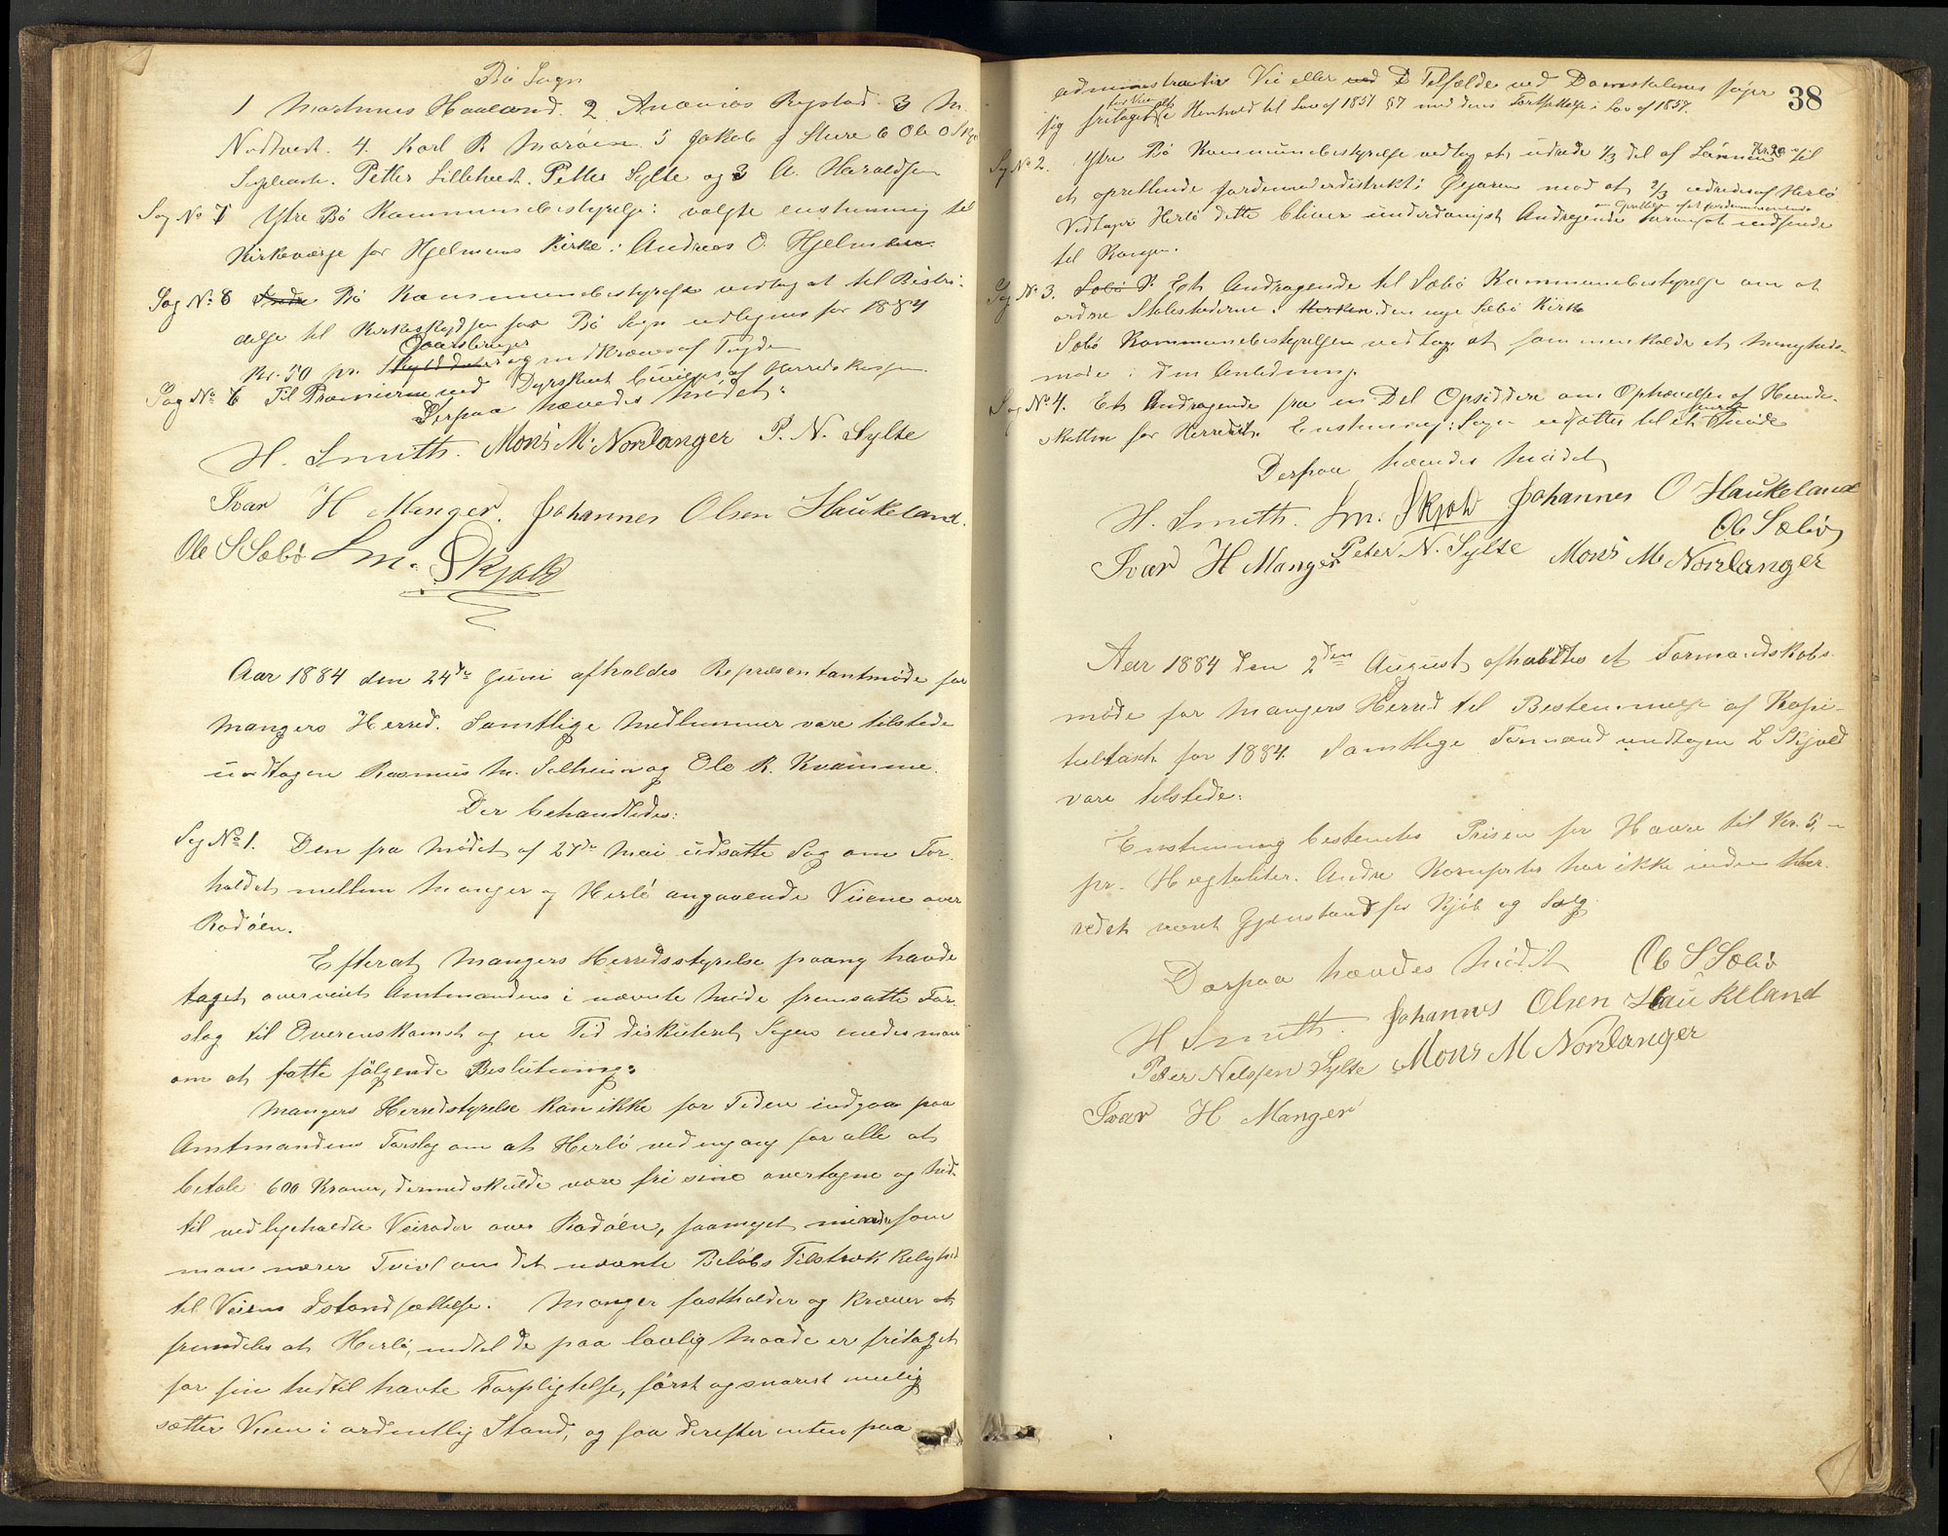 Bö Sogn
1 Martinus Haaland. 2 Ananias Rystad. 3 M.
Nødtvedt. 4. Karl R. Marøen 5 Jakob J Sture 6 Ole O
Suppleant. Petter Lilletvedt. Petter Sylte og 3 A. Haraldsen
Sag No 7 Ytre Bö Kommunebestyrelse: valgte enstemmig til
Kirkeværge for Hjelmens Kirke: Andreas O. Hjelmen.
Sag No 8 Indre Bö Kommunebestyrelse vedtog at til Bestri-
delse til Kirkeskydsen for Bö Sogn udlignes for 1884
Gaardbruger
Kr. 50 pr. og indkræves af Fogden
Sag No 6 Til Præmierne ved Dyrskuet bevilges af Herredskassen
Derpaa hævedes Mødet:
H. Smith. Mons M. Nordanger P. N. Sylte
Ivar H Manger. Johannes Olsen Haukeland.
Ole S Sæbö L. M. Skjold
Aar 1884 den 24de Juni afholdes Repræsentantmøde for
Mangers Herred. Samtlige Medlemmer vare tilstede
undtagen Rasmus M. Solheim og Ole R. Kvamme.
Der behandledes:
Sag No 1. Den fra Mødet af 27de Mai udsatte Sag om For-
holdet mellem Manger og Herlö angaaende Veiene over
Radöen.
Efterat Mangers Herredsstyrelse paany havde
taget overveiet Amtmandens i nævnte Møde fremsatte For-
slag til Overenskomst og en Tid diskuteret Sagen enedes man
om at fatte følgende Beslutning:
Mangers Herredstyrelse kan ikke for Tiden indgaa paa
Amtmandens Forslag om at Herlö ved engang for alle at
betale 600 Kroner, dermed skulde være fri sine overtagne og hid-
til vedligeholdte Veiroder over Radöen, saameget mindre som
man nærer Tvivl om det nævnte Beløbs Tilstrækkelighed
til Veiens Istandsættelse. Manger fastholder og kræver at
fremdeles at Herlö, indtil de paa lovlig Maade er fritaget
for sin hidtil havte Forpligtelse, först og snarest mulig
sætter Veien i ordentlig Stand, og saa derefter enten paa
38
administrativ Vei eller ved I Tilfælde ved Domstolenes søger
sig fritaget i Henhold til Lov af 1851 § 7 med dens Fortsættelse i Lov af 1857.
Sag No 2. Ytre Bö Kommunebestyrelse vedtog at udrede 1/3 del af Lønnen til
et oprettende Jordemoderdistrikt i Øygaren mod at 2/3 udredes af Herlö
Vedtager Herlö dette bliver underdanigst Andragende herom at indsende
til Kongen.
Sag No 3. Et Andragende til Sæbö Kommunebestyrelse om at
ordne Stolestederne i den nye Sæbö Kirke
Sæbö Kommunebestyrelsen vedtog at sammenkalde et Menigheds-
møde i den Anledning.
Sag No 4. Et Andragende fra en Del Opsiddere om Ophævelse af Hunde-
skatten for Herredet. Enstemmig: Sagen udsættes til et senere Møde
Derpaa hævedes Mødet
H. Smith. L. M. Skjold Johannes O Haukeland
Ole Sæbö
Ivar H Manger Peter N. Sylte Mons M Nordanger
Aar 1884 den 2den August afholdtes et Formandskabs-
møde for Mangers Herred til Bestemmelse af Kapi-
teltaxt for 1884. Samtlige Formænd undtagen L Skjold
vare tilstede.
Enstemmig bestemtes Prisen for Havre til Kr. 5,-
pr. Hegtoliter. Andre Kornsorter har ikke inden Her-
redet været Gjenstand for Kjöb og Salg.
Derpaa hævedes Mødet Ole S Sæbö
H Smith. Johannes Olsen Haukeland
Peter Nelssen Sylte Mons M Nordanger
Ivar H Manger